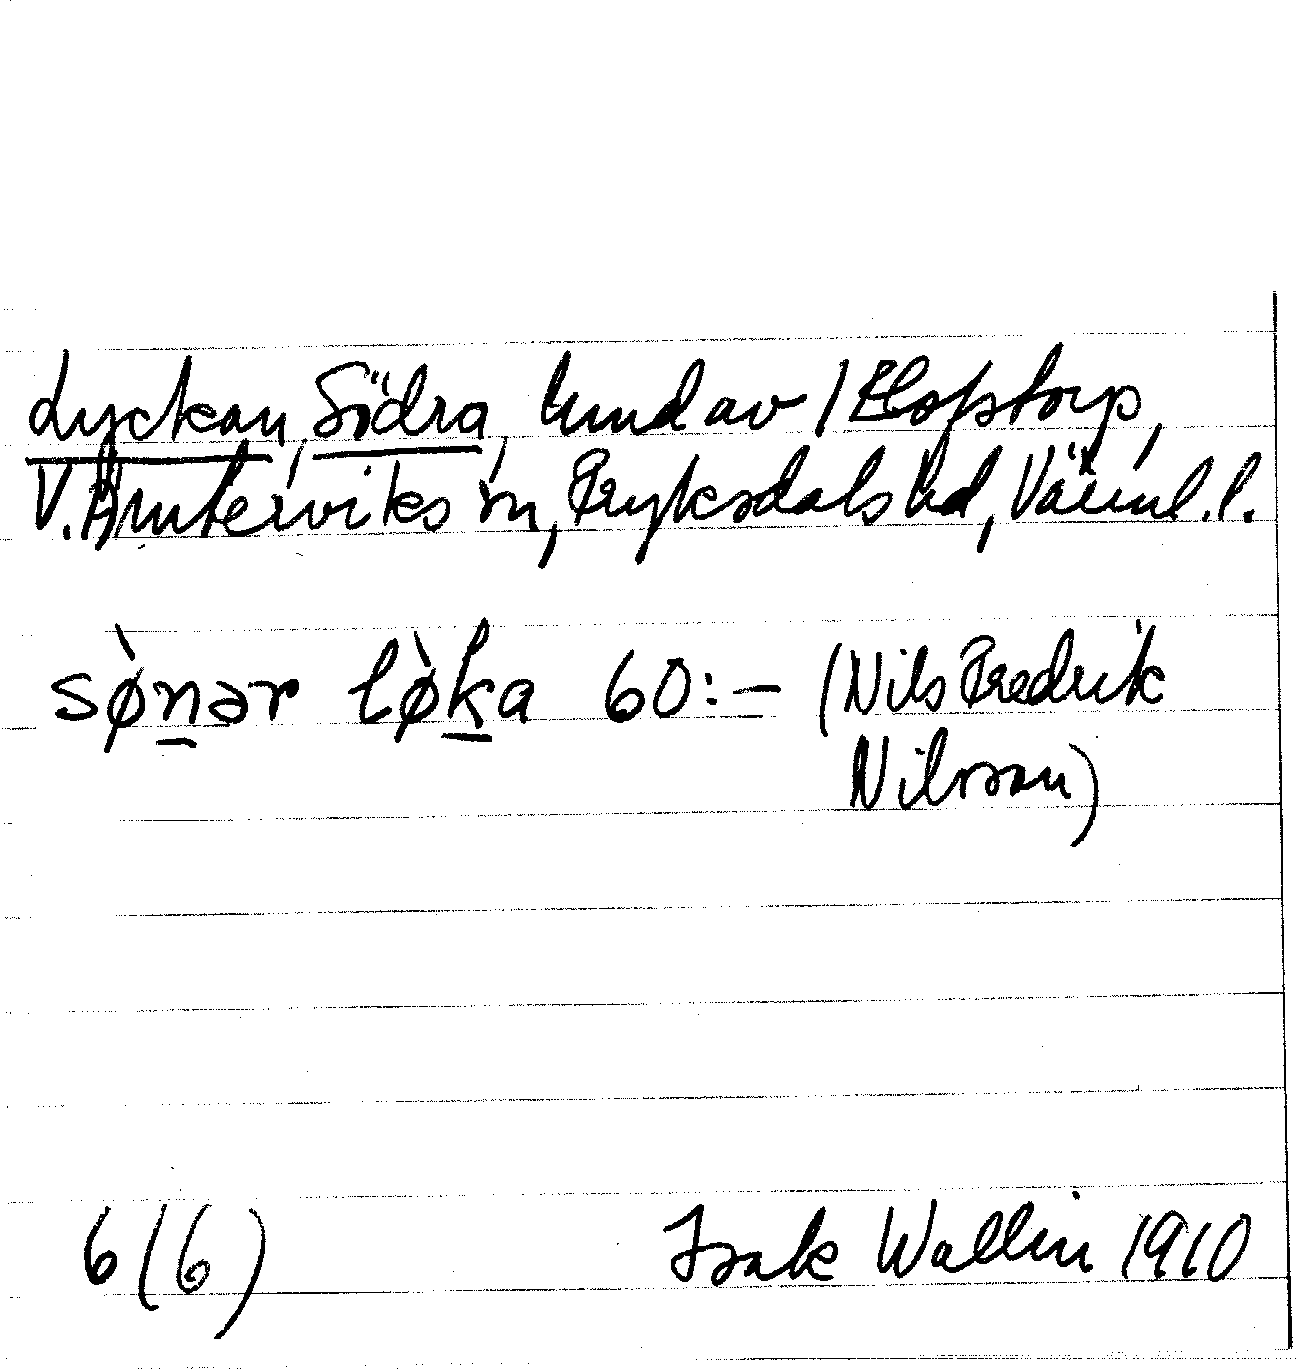 Lyckan, Södra, hmd av 1 Elofstorp,
V. Ämterviks sn, Fryksdals hd, Värml. l.
sø̀nər lø̀ka 60:- (Nils Fredrik
Nilsson)
6 (6) Isak Wallin 1910